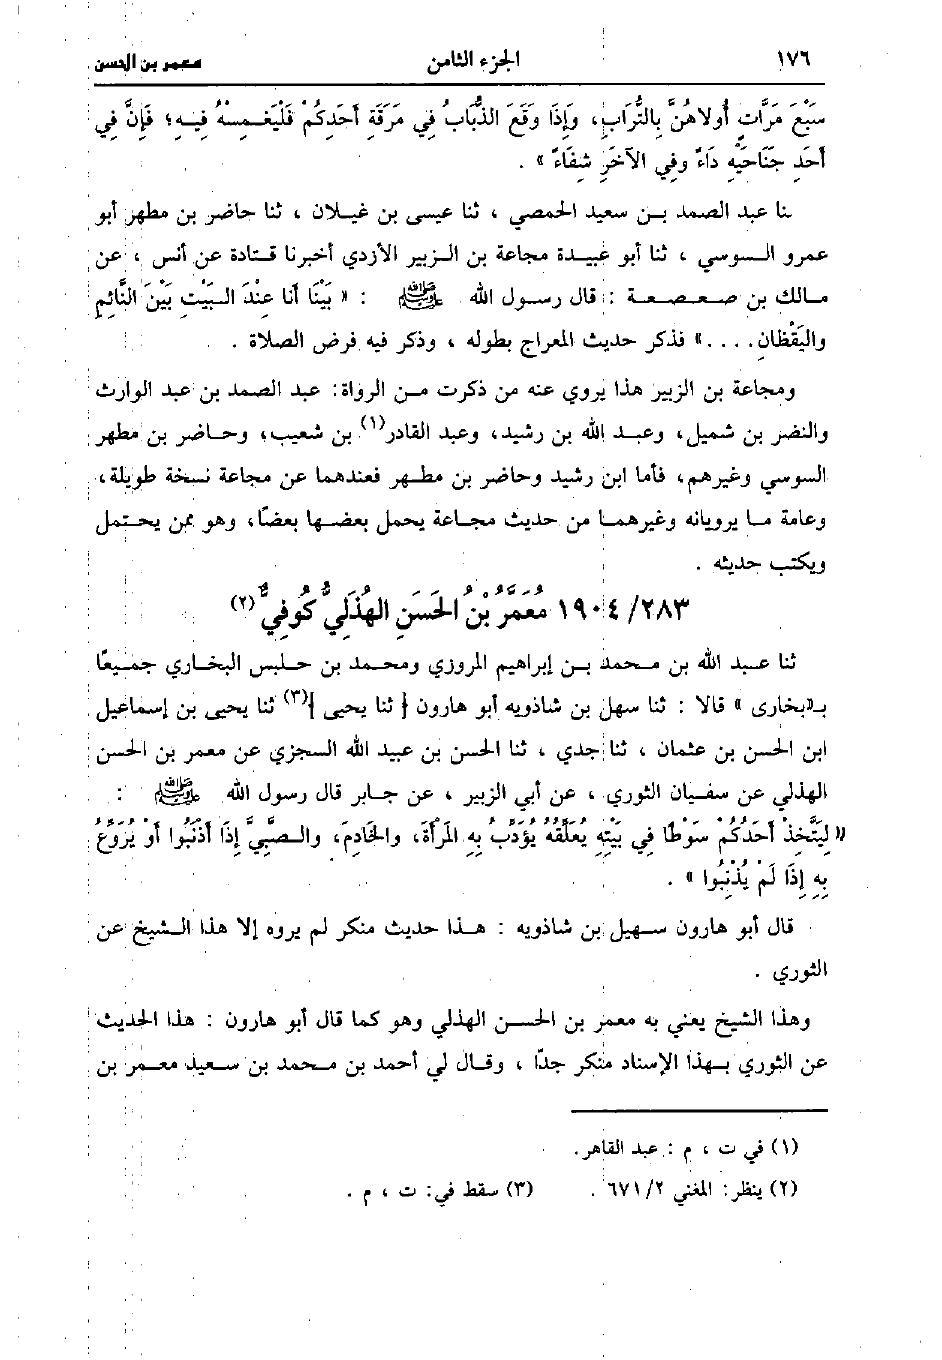 ١٧٦ الجزء الثامن معمر بن الحسن
سَبْعَ مَرَّاتٍ أُولاهُنَّ بِالتُّرَابِ، وَإِذَا وَقَعَ الذُّبَابُ فِي مَرَقَةِ أَحَدِكُمْ فَلْيَغْمِسْهُ فِيهِ؛ فَإِنَّ فِي
أَحَدِ جَنَاحَيْهِ دَاءً وفِي الآخَرِ شِفَاءً » .
ثنا عبد الصمد بن سعيد الحمصي ، ثنا عيسى بن غيلان ، ثنا حاضر بن مطهر أبو
عمرو السوسي ، ثنا أبو عبيدة مجاعة بن الزبير الأزدي أخبرنا قتادة عن أنس ، عن
مالك بن صعصعة : قال رسول الله ﷺ : « بَيْنَا أنا عِنْدَ الْبَيْتِ بَيْنَ النَّائِمِ
واليَقْظانِ. . . .» فذكر حديث المعراج بطوله ، وذكر فيه فرض الصلاة .
ومجاعة بن الزبير هذا يروي عنه من ذكرت من الرواة: عبد الصمد بن عبد الوارث
والنضر بن شميل، وعبد الله بن رشيد، وعبد القادر(١) بن شعيب، وحاضر بن مطهر
السوسي وغيرهم، فأما ابن رشيد وحاضر بن مطهر فعندهما عن مجاعة نسخة طويلة،
وعامة ما يرويانه وغيرهما من حديث مجاعة يحمل بعضها بعضًا، وهو ممن يحتمل
ويكتب حديثه .
٢٨٣/ ١٩٠٤ مُعَمَّرُ بْنُ الحَسَنِ الهُذَلِيُّ كُوفِيٌّ(٢)
ثنا عبد الله بن محمد بن إبراهيم المروزي ومحمد بن حلبس البخاري جميعًا
بـ«بخارى » قالا : ثنا سهل بن شاذويه أبو هارون { ثنا يحيى }(٣) ثنا يحيى بن إسماعيل
ابن الحسن بن عثمان ، ثنا جدي ، ثنا الحسن بن عبيد الله السجزي عن معمر بن الحسن
الهذلي عن سفيان الثوري ، عن أبي الزبير ، عن جابر قال رسول الله ﷺ :
« لِيَتَّخِذْ أَحَدُكُمْ سَوْطًا فِي بَيْتِهِ يُعَلِّقُهُ يُؤَدِّبُ بِهِ المَرْأَةَ، والخَادِمَ، والصَّبِيَّ إِذَا أَذْنَبُوا أَوْ يُرَوِّعُ
بِهِ إِذَا لَمْ يُذْنِبُوا » .
قال أبو هارون سهيل بن شاذويه : هذا حديث منكر لم يروه إلا هذا الشيخ عن
الثوري .
وهذا الشيخ يعني به معمر بن الحسن الهذلي وهو كما قال أبو هارون : هذا الحديث
عن الثوري بهذا الإسناد منكر جدًا ، وقال لي أحمد بن محمد بن سعيد معمر بن
(١) في ت ، م : عبد القاهر.
(٢) ينظر: المغني ٦٧١/٢ . (٣) سقط في: ت ، م .